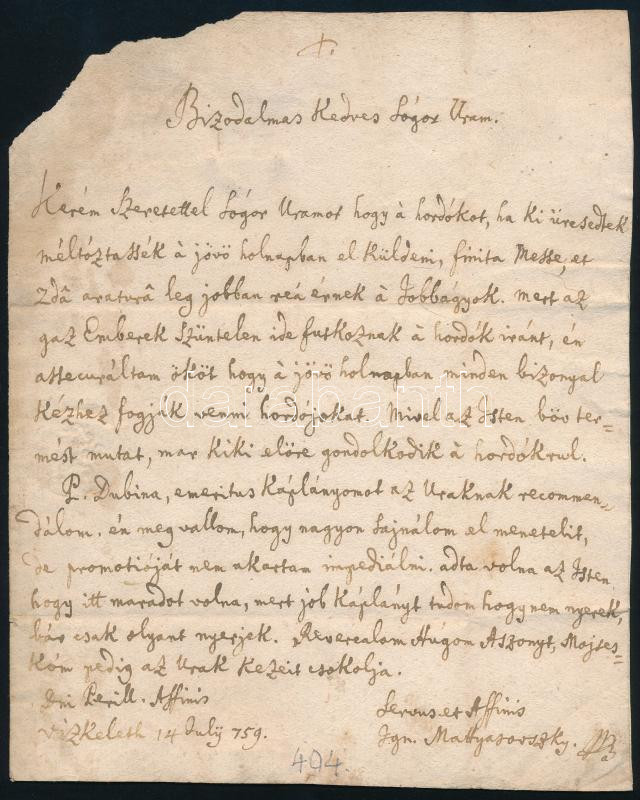 Bizodalmas Kedves Sógor Uram.
Kerém Szeretettel Sógor Uramot hogy à hordókot, ha ki üresedtek
méltóztassék à jövö holnapban el küldeni, finita Messe, et
2dâ araturâ leg jobban reá érnek à Jobbágyok. mert az
gaz Emberek Szüntelen ide futkoznak à hordók iránt, én
assecuráltam ököt hogy à jövö holnapban minden bizonyal
Kézhez fogják venni hordójokat. Mivel az Isten böv ter=
mést mutat, mar kiki elöre gondolkodik à hordókrul.
P. Dubina, emeritus Káplányomot az Uraknak recommen=
dálom. én meg vallom, hogy nagyon sajnálom el menetelit,
de promotióját nem akartam impediálni. adta volna az Isten
hogy itt maradot volna, mert job Káplányt tudom hogy nem nyerek,
bár csak olyant nyerjek. Reverealom Húgom Aszonyt, Mojses=
Kóm pedig az Urak kezeit csokolja.
Dni Perill. Affinis
Vizkeleth 14 Julÿ 759.
Servus et Affinis
Ign. Mattyasovszky.
404.
darabanth